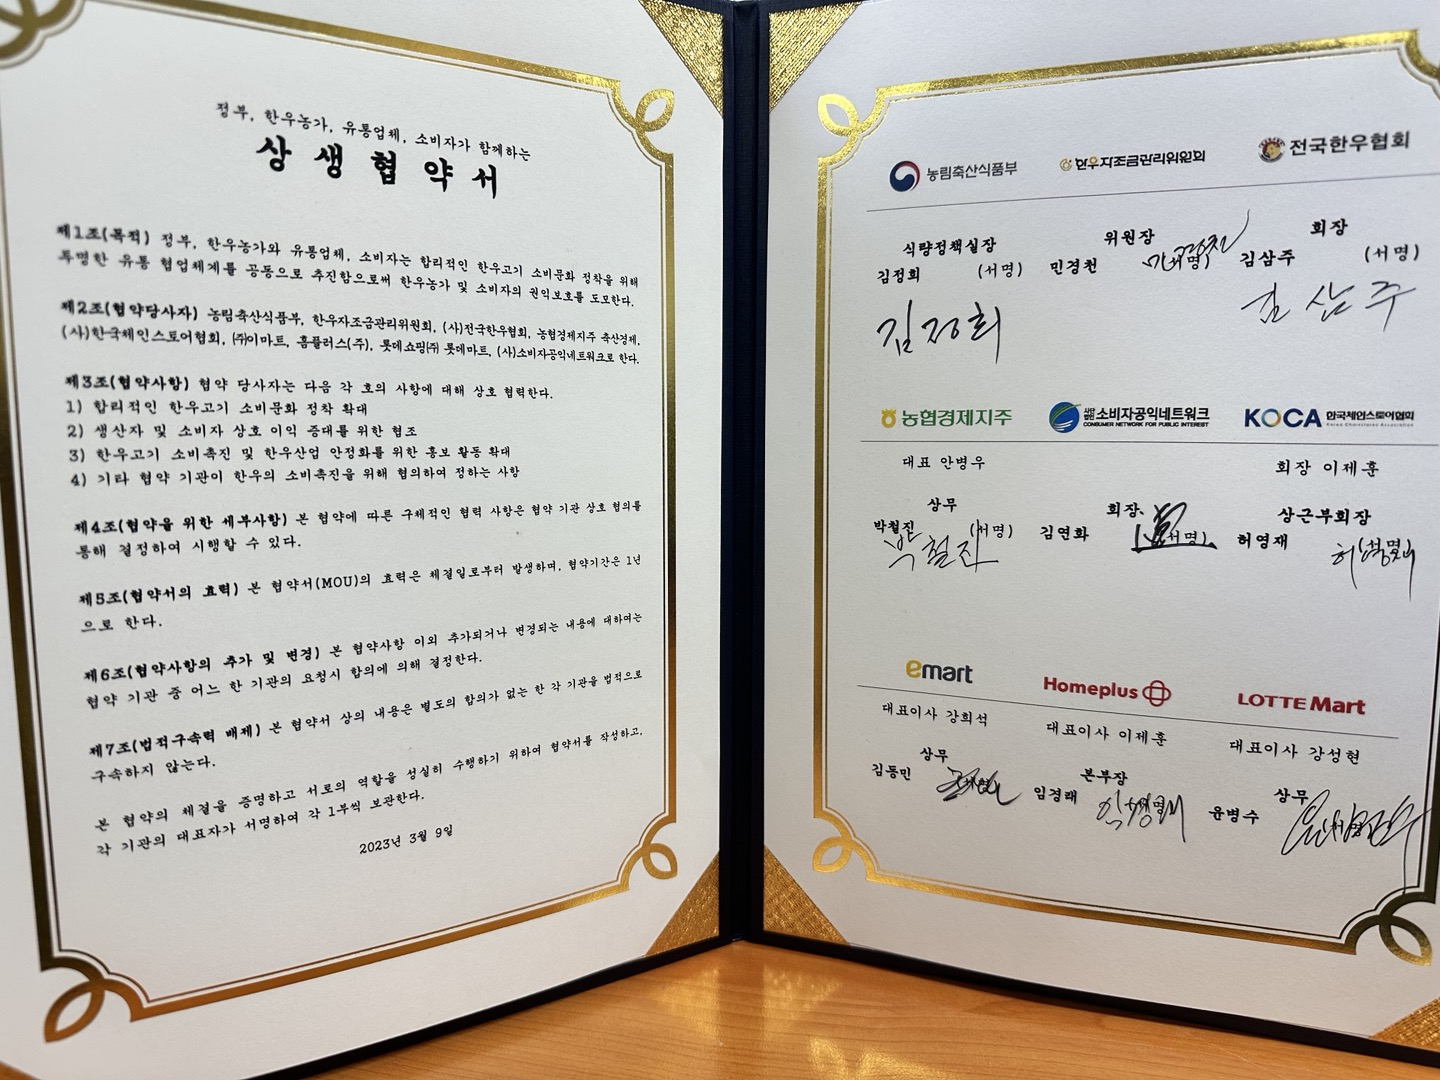 정부, 한우농가, 유통업체, 소비자가 함께하는
상생협약서
제1조(목적) 정부, 한우농가와 유통업체, 소비자는 합리적인 한우고기 소비문화 정착을 위해
투명한 유통 협업체계를 공동으로 추진함으로써 한우농가 및 소비자의 권익보호를 도모한다.
제2조(협약당사자) 농림축산식품부, 한우자조금관리위원회, (사)전국한우협회, 농협경제지주 축산경제,
(사)한국체인스토어협회, ㈜이마트, 홈플러스(주), 롯데쇼핑㈜ 롯데마트, (사)소비자공익네트워크로 한다.
제3조(협약사항) 협약 당사자는 다음 각 호의 사항에 대해 상호 협력한다.
1) 합리적인 한우고기 소비문화 정착 확대
2) 생산자 및 소비자 상호 이익 증대를 위한 협조
3) 한우고기 소비촉진 및 한우산업 안정화를 위한 홍보 활동 확대
4) 기타 협약 기관이 한우의 소비촉진을 위해 협의하여 정하는 사항
제4조(협약을 위한 세부사항) 본 협약에 따른 구체적인 협력 사항은 협약 기관 상호 협의를
통해 결정하여 시행할 수 있다.
제5조(협약서의 효력) 본 협약서(MOU)의 효력은 체결일로부터 발생하며, 협약기간은 1년
으로 한다.
제6조(협약사항의 추가 및 변경) 본 협약사항 이외 추가되거나 변경되는 내용에 대하여는
협약 기관 중 어느 한 기관의 요청시 합의에 의해 결정한다.
제7조(법적구속력 배제) 본 협약서 상의 내용은 별도의 합의가 없는 한 각 기관을 법적으로
구속하지 않는다.
본 협약의 체결을 증명하고 서로의 역할을 성실히 수행하기 위하여 협약서를 작성하고,
각 기관의 대표자가 서명하여 각 1부씩 보관한다.
2023년 3월 9일
농림축산식품부 한우자조금관리위원회 전국한우협회
식량정책실장 위원장 회장
김정희 (서명) 민경천 (서명) 김삼주 (서명)
김정희 김삼주
농협경제지주 사단법인 소비자공익네트워크 KOCA 한국체인스토어협회
CONSUMER NETWORK FOR PUBLIC INTEREST Korea Chainstores Association
대표 안병우 회장 이제훈
상무 회장 상근부회장
박철진 (서명) 김연화 (서명) 허영재 (서명)
박철진
emart Homeplus LOTTE Mart
대표이사 강희석 대표이사 이제훈 대표이사 강성현
상무 본부장 상무
김동민 임경래 윤병수